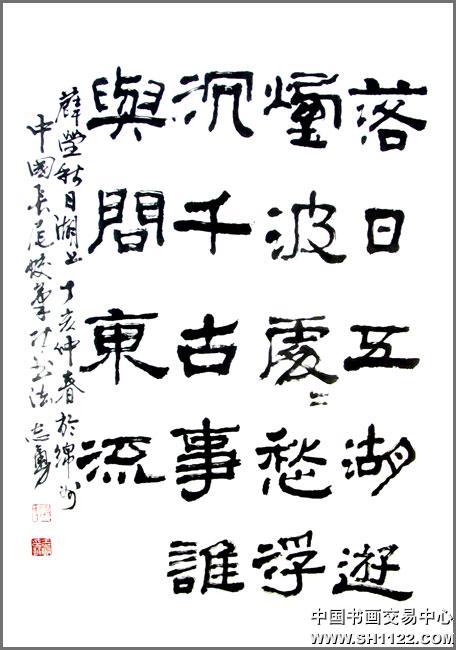 落日五湖遊
煙波處〻愁浮
沉千古事誰
與問東流
薛瑩秋日湖上 丁亥仲春於綿州
中國長尾 筆 書法 志勇
中国书画交易中心
WWW.SH1122.COM